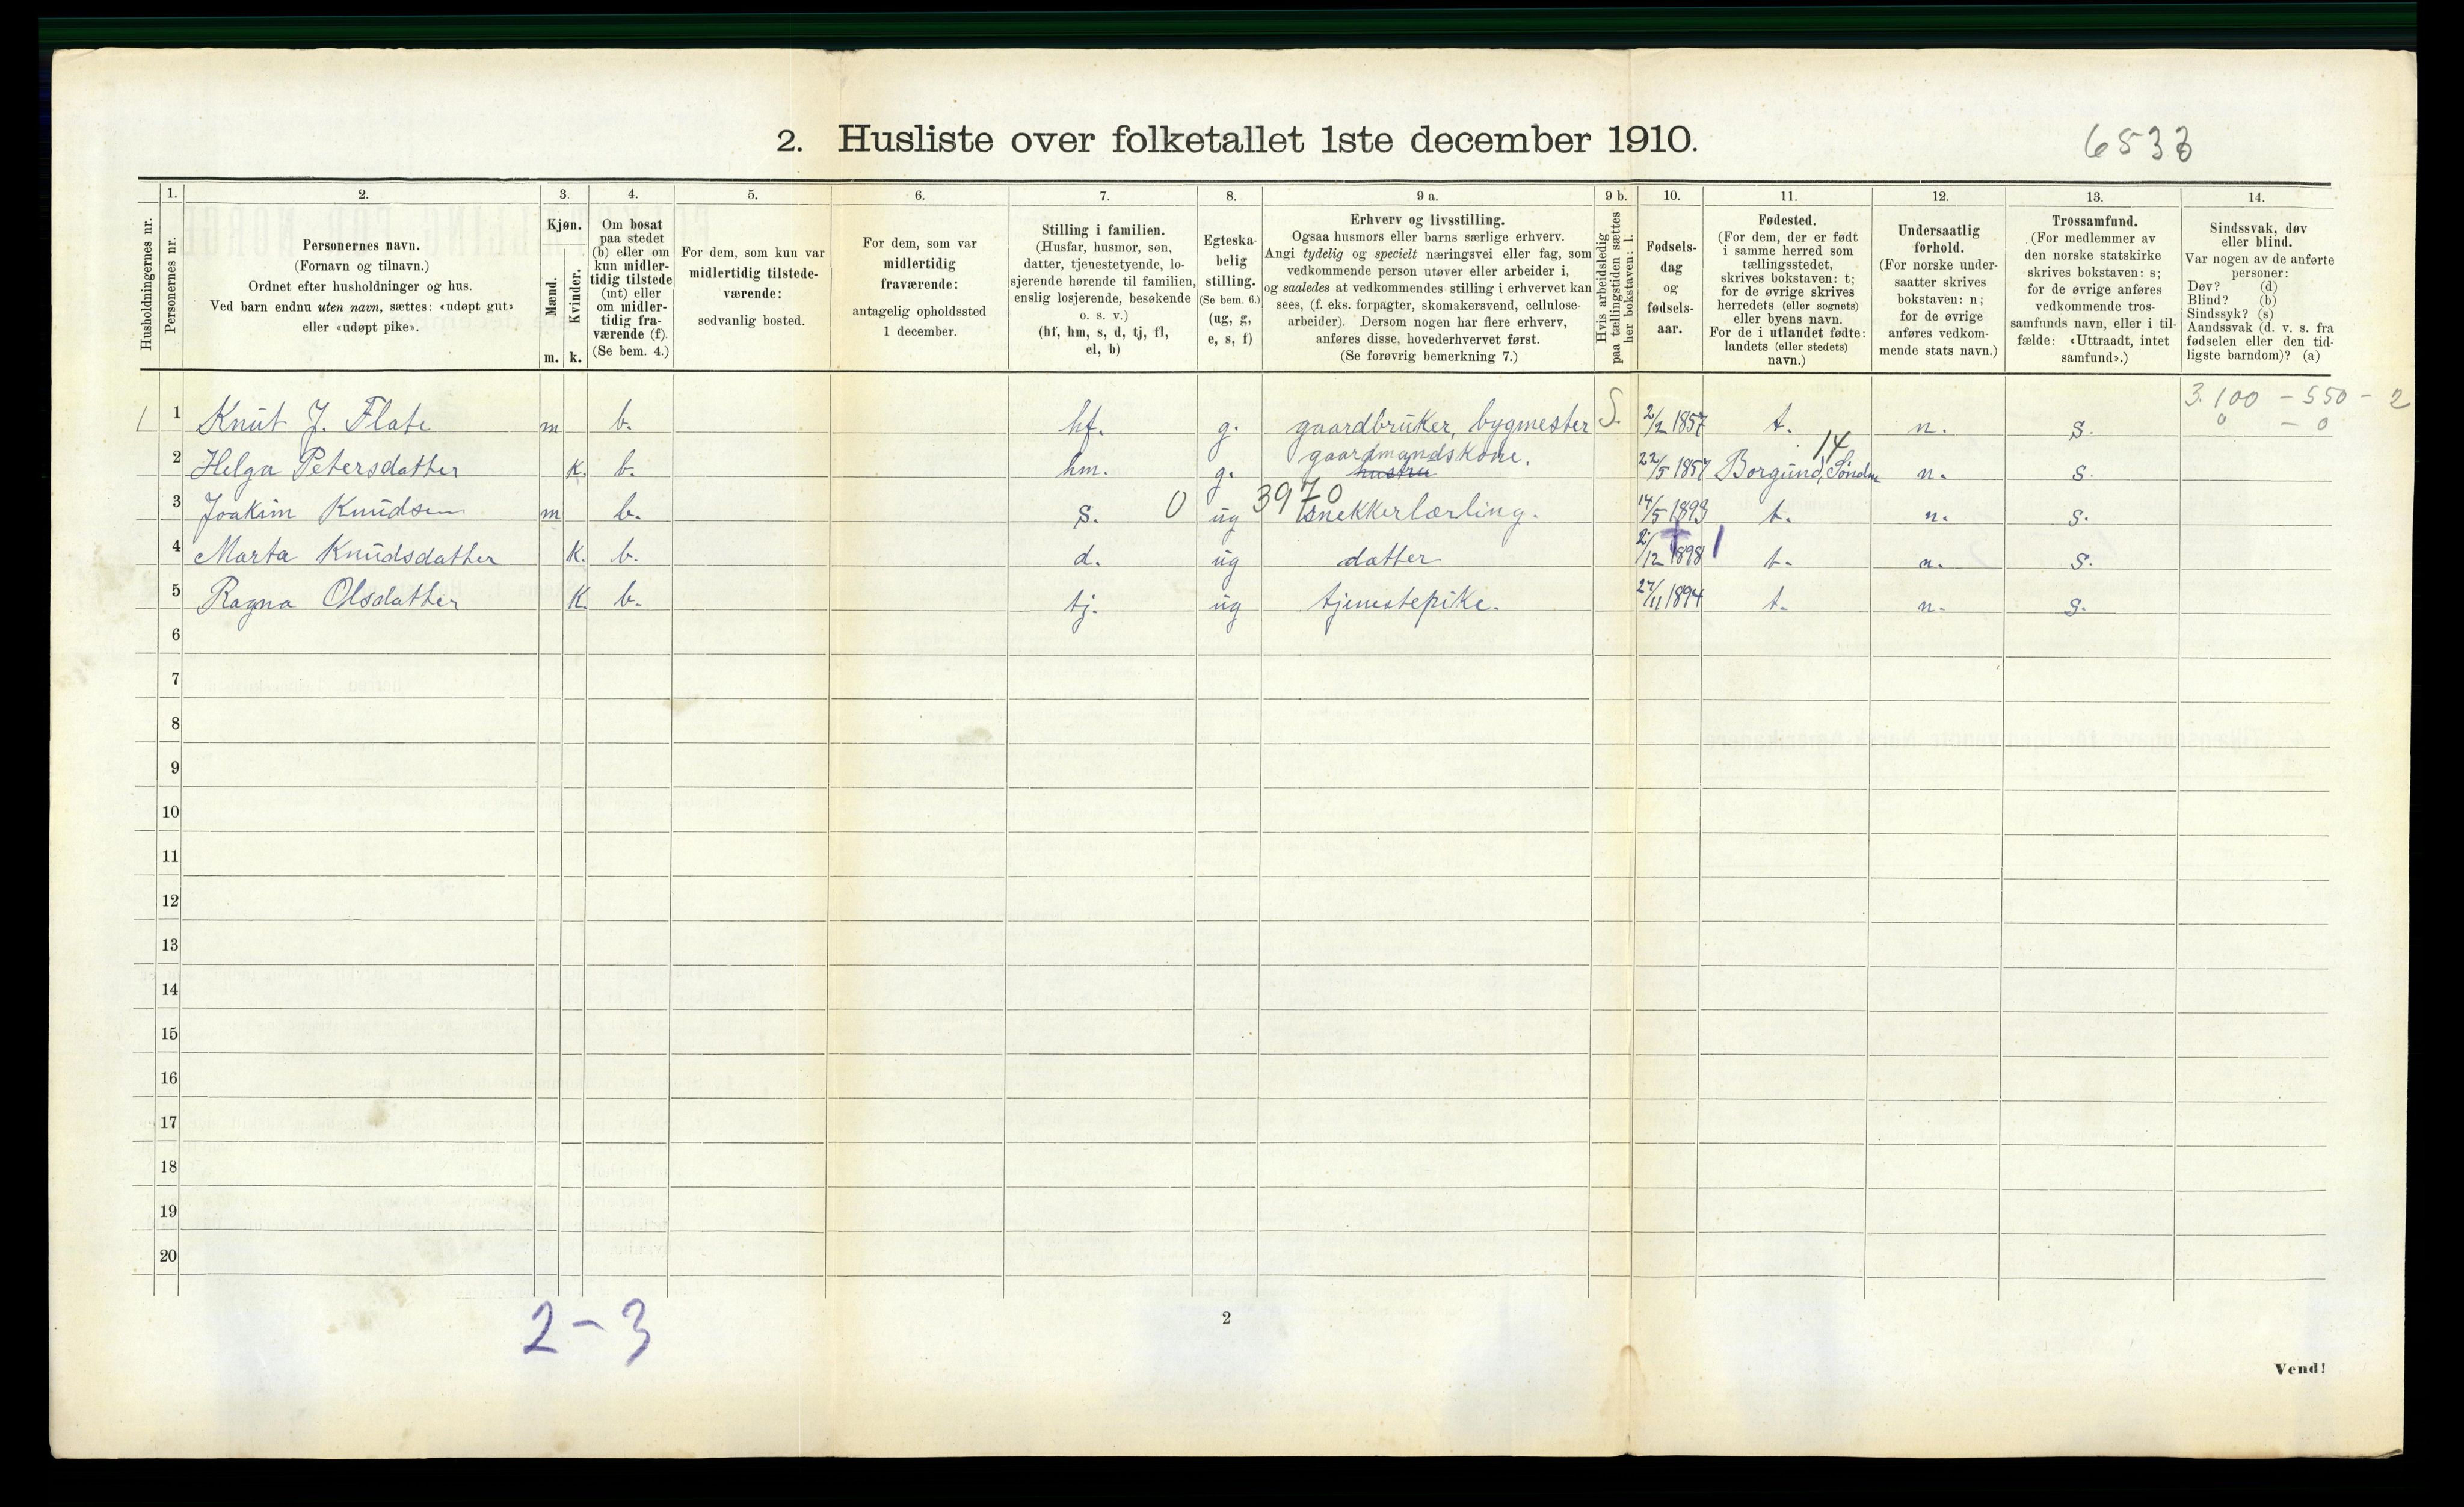 2. Husliste over folketallet 1ste december 1910.
6533
Husholdningernes nr.
1. Personernes nr.
2. Personernes navn.
(Fornavn og tilnavn.)
Ordnet efter husholdninger og hus.
Ved barn endnu uten navn, sættes: «udøpt gut»
eller «udøpt pike».
3. Kjøn.
Mænd. m.
Kvinder. k.
4. Om bosat
paa stedet
(b) eller om
kun midler-
tidig tilstede
(mt) eller
om midler-
tidig fra-
værende (f).
(Se bem. 4.)
5. For dem, som kun var
midlertidig tilstede-
værende:
sedvanlig bosted.
6. For dem, som var
midlertidig
fraværende:
antagelig opholdssted
1 december.
7. Stilling i familien.
(Husfar, husmor, søn,
datter, tjenestetyende, lo-
sjerende hørende til familien,
enslig losjerende, besøkende
o. s. v.)
(hf, hm, s, d, tj, fl,
el, b)
8. Egteska-
belig
stilling.
(Se bem. 6.)
(ug, g,
e, s, f)
9 a. Erhverv og livsstilling.
Ogsaa husmors eller barns særlige erhverv.
Angi tydelig og specielt næringsvei eller fag, som
vedkommende person utøver eller arbeider i,
og saaledes at vedkommendes stilling i erhvervet kan
sees, (f. eks. forpagter, skomakersvend, cellulose-
arbeider). Dersom nogen har flere erhverv,
anføres disse, hovederhvervet først.
(Se forøvrig bemerkning 7.)
9 b. Hvis arbeidsledig
paa tællingstiden sættes
her bokstaven: l.
10. Fødsels-
dag
og
fødsels-
aar.
11. Fødested.
(For dem, der er født
i samme herred som
tællingsstedet,
skrives bokstaven: t;
for de øvrige skrives
herredets (eller sognets)
eller byens navn.
For de i utlandet fødte:
landets (eller stedets)
navn.)
12. Undersaatlig
forhold.
(For norske under-
saatter skrives
bokstaven: n;
for de øvrige
anføres vedkom-
mende stats navn.)
13. Trossamfund.
(For medlemmer av
den norske statskirke
skrives bokstaven: s;
for de øvrige anføres
vedkommende tros-
samfunds navn, eller i til-
fælde: «Uttraadt, intet
samfund».)
14. Sindssvak, døv
eller blind.
Var nogen av de anførte
personer:
Døv? (d)
Blind? (b)
Sindssyk? (s)
Aandssvak (d. v. s. fra
fødselen eller den tid-
ligste barndom)? (a)
3.100 - 550 - 2
0 - 0
1 1 Knut J. Flate m b. hf. g. gaardbruker, bygmester S. 2/2 1857 t. n. s.
gaardmandskone. 14
2 Helga Petersdatter k. b. hm. g. hustru 22/5 1857 Borgund, Søndm n. s.
0 3970
3 Joakim Knudsen m b. s. ug snekkerlærling. 14/5 1893 t. n. s.
4 Marta Knudsdatter k. b. d. ug datter 2/12 1898 1 t. n. s.
5 Ragna Olsdatter k. b. tj. ug tjenestepike. 27/11 1894 t. n. s.
6
7
8
9
10
11
12
13
14
15
16
17
18
19
20
2-3
2
Vend!